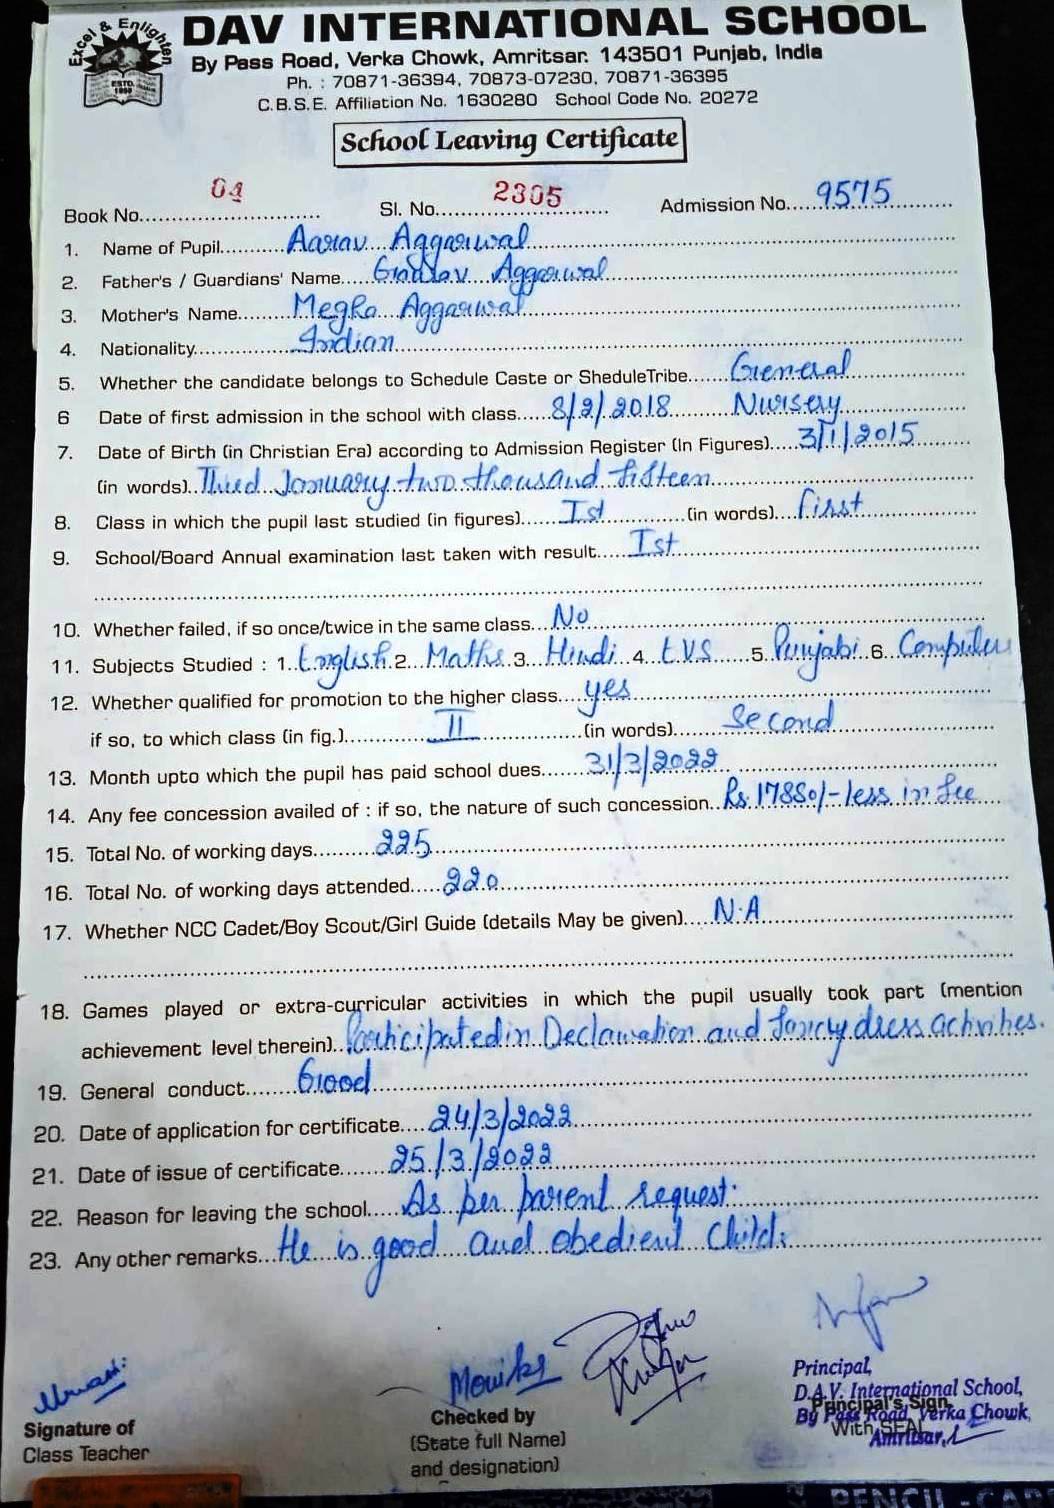 Excel & Enlighten
ESTD.
DAV INTERNATIONAL SCHOOL
By Pass Road, Verka Chowk, Amritsar. 143501 Punjab, India
Ph. : 70871-36394, 70873-07230, 70871-36395
C.B.S.E. Affiliation No. 1630280 School Code No. 20272
School Leaving Certificate
Book No. 04 Sl. No. 2305 Admission No. 9575
1. Name of Pupil Aarav Aggarwal
2. Father's / Guardians' Name Gaurav Aggarwal
3. Mother's Name Megha Aggarwal
4. Nationality Indian
5. Whether the candidate belongs to Schedule Caste or SheduleTribe General
6 Date of first admission in the school with class 8/2/2018 Nursery
7. Date of Birth (in Christian Era) according to Admission Register (In Figures) 3/1/2015
(in words) Third January two thousand fifteen
8. Class in which the pupil last studied (in figures) Ist (in words) First
9. School/Board Annual examination last taken with result Ist
10. Whether failed, if so once/twice in the same class No
11. Subjects Studied : 1. English 2. Maths 3. Hindi 4. EVS 5. Punjabi 6. Computer
12. Whether qualified for promotion to the higher class yes
if so, to which class (in fig.) II (in words) Second
13. Month upto which the pupil has paid school dues 31/3/2022
14. Any fee concession availed of : if so, the nature of such concession Rs. 17880/- less in fee
15. Total No. of working days 225
16. Total No. of working days attended 220
17. Whether NCC Cadet/Boy Scout/Girl Guide (details May be given) N.A
18. Games played or extra-curricular activities in which the pupil usually took part (mention
achievement level therein) Participated in Declamation and fancy dress activities.
19. General conduct Good
20. Date of application for certificate 24/3/2022
21. Date of issue of certificate 25/3/2022
22. Reason for leaving the school As per parent request.
23. Any other remarks He is good and obedient Child.
Monika
Principal,
D.A.V. International School,
By Pass Road, Verka Chowk,
Amritsar.
Principal's Sign.
With SEAL
Signature of
Class Teacher
Checked by
(State full Name)
and designation)
PENCIL